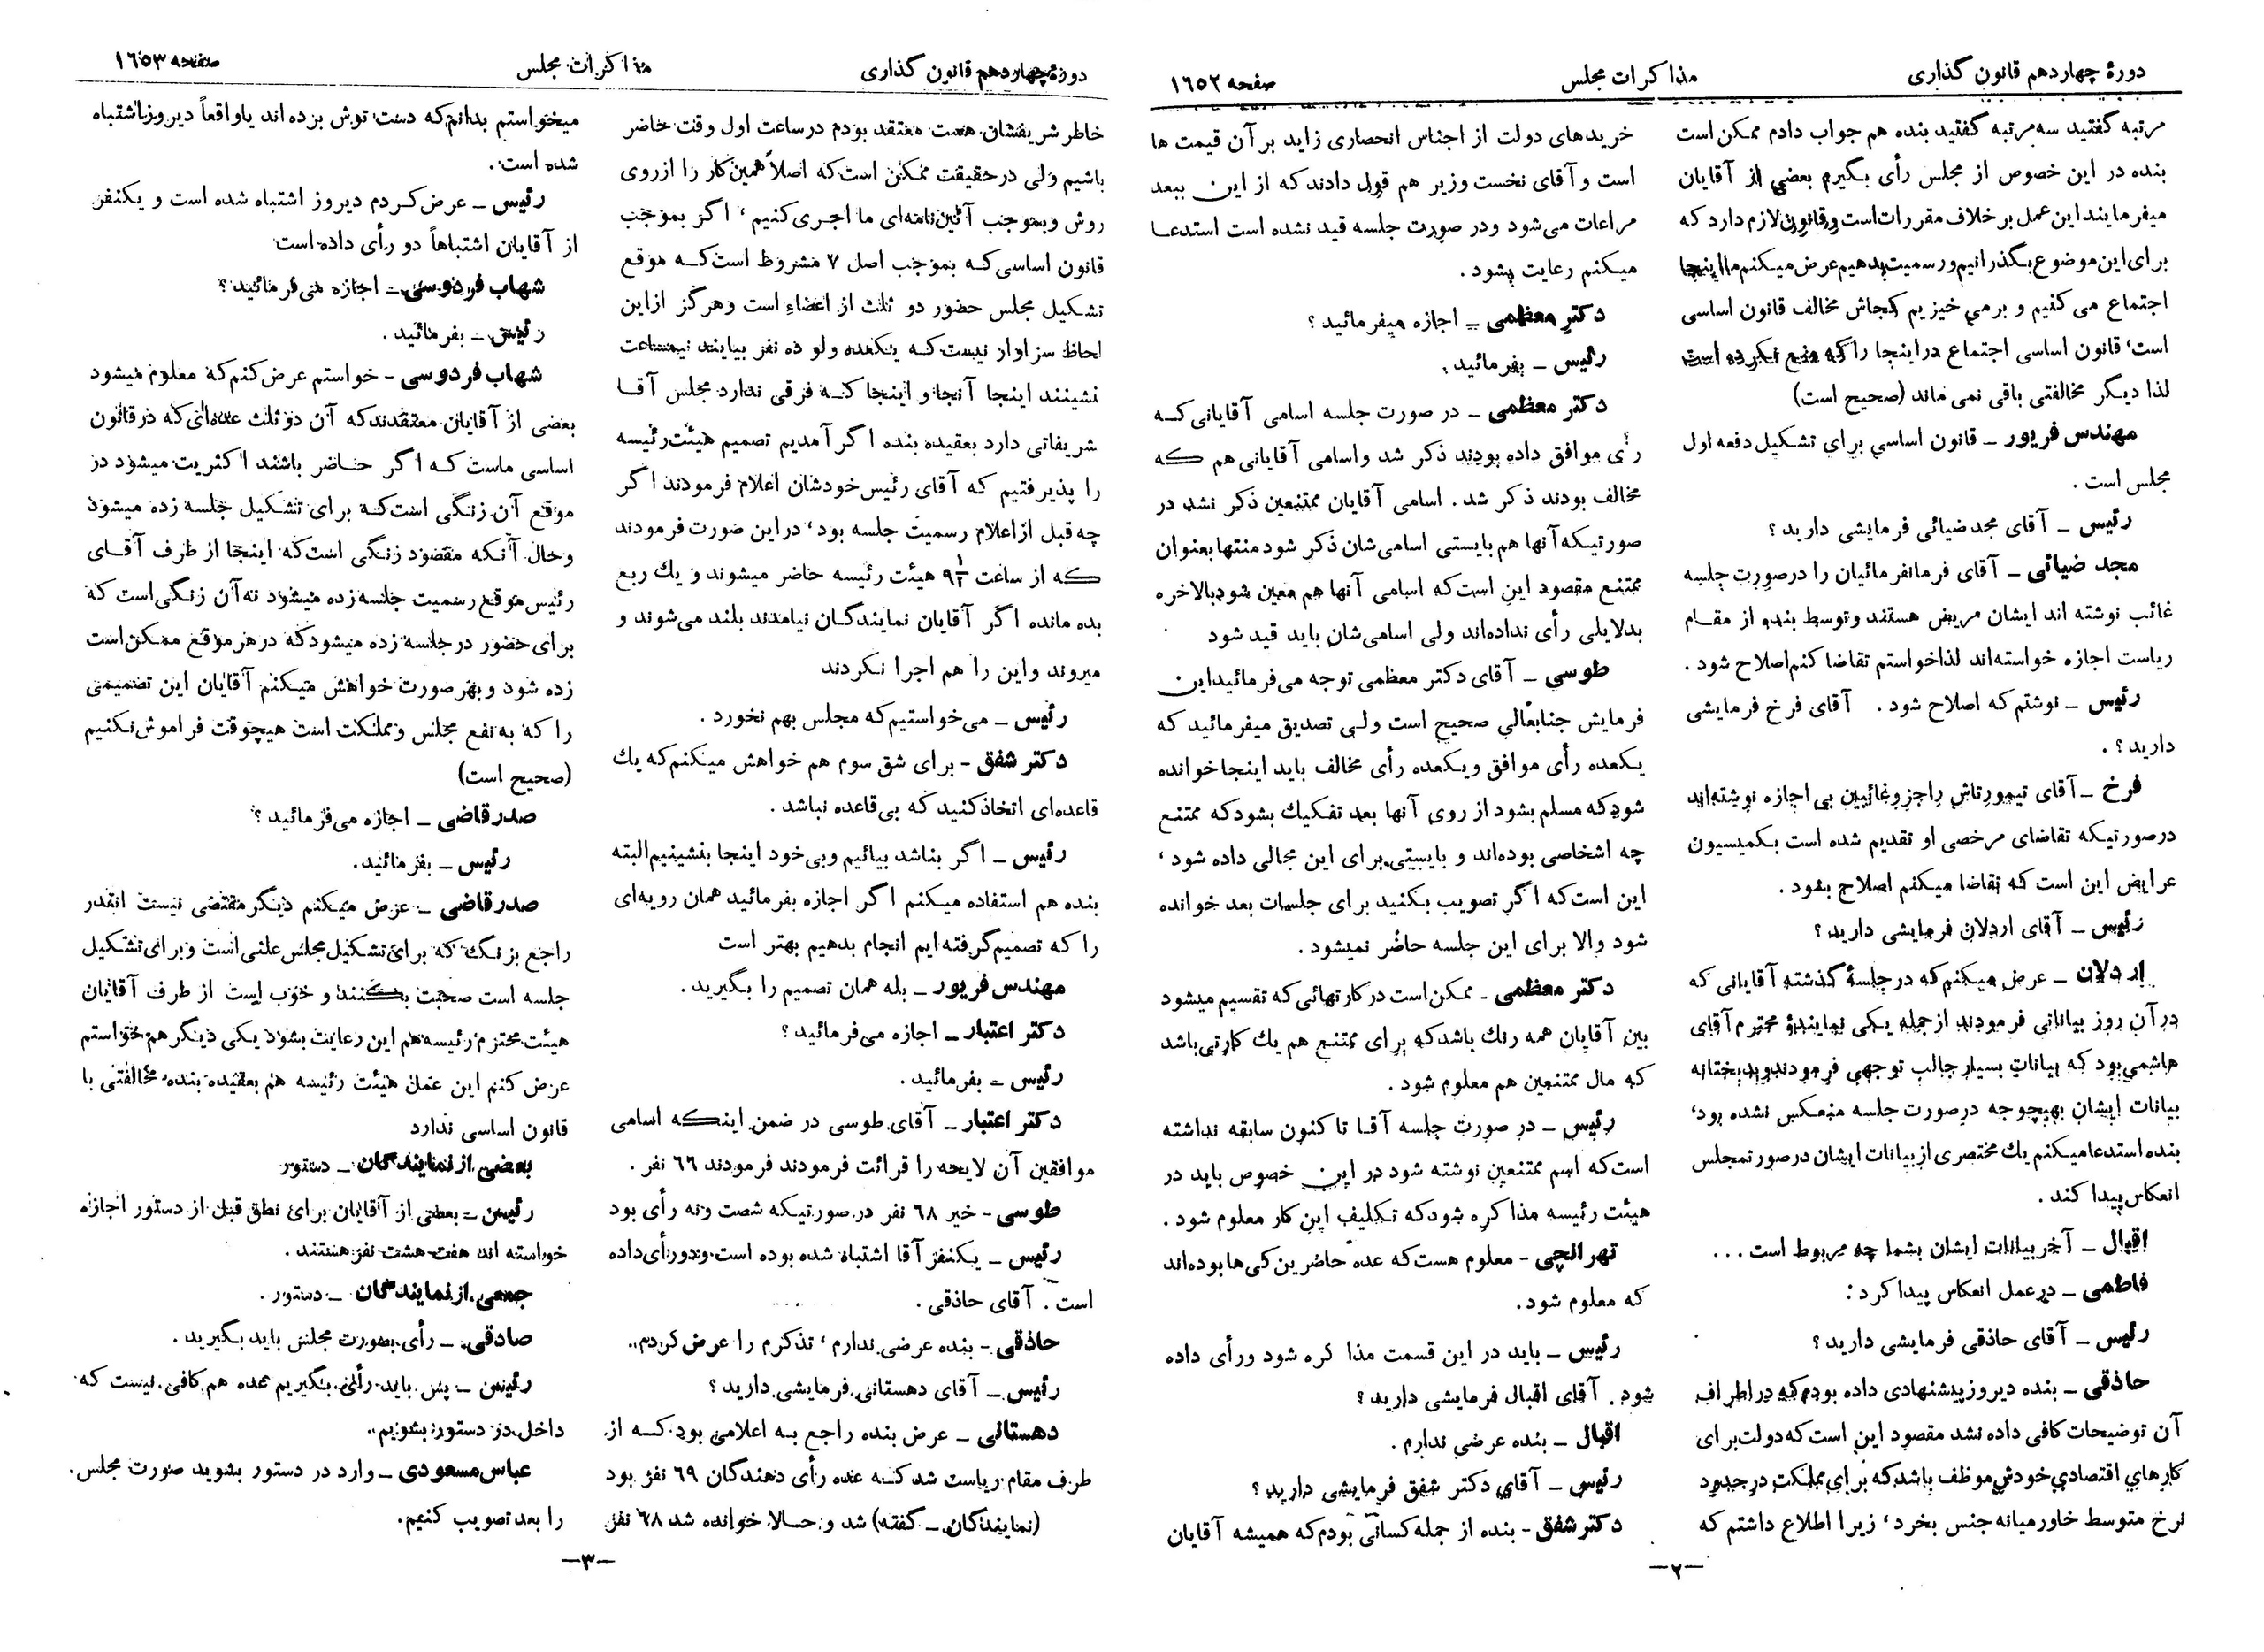 دورهٔ چهاردهم قانون گذاری
مذاکرات مجلس
صفحه ۱۶۵۲
مرتبه گفتید سه‌مرتبه گفتید بنده هم جواب دادم ممکن است
بنده در این خصوص از مجلس رأی بگیرم بعضی از آقایان
میفرمایند این عمل برخلاف مقررات است و قانون لازم دارد که
برای این موضوع بگذرانیم و رسمیت بدهیم عرض میکنم ما اینجا
اجتماع می کنیم و برمی خیزیم کجاش مخالف قانون اساسی
است، قانون اساسی اجتماع در اینجا را که منع نکرده است
لذا دیگر مخالفتی باقی نمی ماند (صحیح است)
مهندس فریور ــ قانون اساسی برای تشکیل دفعه اول
مجلس است .
رئیس ــ آقای مجد ضیائی فرمایشی دارید ؟
مجد ضیائی ــ آقای فرمانفرمائیان را در صورت جلسه
غائب نوشته اند ایشان مریض هستند و توسط بنده از مقام
ریاست اجازه خواسته‌اند لذا خواستم تقاضا کنم اصلاح شود .
رئیس ــ نوشتم که اصلاح شود . آقای فرخ فرمایشی
دارید ؟ .
فرخ ــ آقای تیمورتاش را جزو غائبین بی اجازه نوشته‌اند
در صورتیکه تقاضای مرخصی او تقدیم شده است بکمیسیون
عرایض این است که تقاضا میکنم اصلاح بشود .
رئیس ــ آقای اردلان فرمایشی دارید ؟
اردلان ــ عرض میکنم که در جلسهٔ گذشته آقایانی که
در آن روز بیاناتی فرمودند از جمله یکی نمایندهٔ محترم آقای
هاشمی بود که بیانات بسیار جالب توجهی فرمودند و بدبختانه
بیانات ایشان بهیچوجه در صورت جلسه منعکس نشده بود،
بنده استدعا میکنم یك مختصری از بیانات ایشان در صورتمجلس
انعکاس پیدا کند .
اقبال ــ آخر بیانات ایشان بشما چه مربوط است ...
فاطمی ــ در عمل انعکاس پیدا کرد :
رئیس ــ آقای حاذقی فرمایشی دارید ؟
حاذقی ــ بنده دیروز پیشنهادی داده بودم که در اطراف
آن توضیحات کافی داده نشد مقصود این است که دولت برای
کارهای اقتصادی خودش موظف باشد که برای مملکت در حدود
نرخ متوسط خاورمیانه جنس بخرد ، زیرا اطلاع داشتم که
خریدهای دولت از اجناس انحصاری زاید بر آن قیمت ها
است و آقای نخست وزیر هم قول دادند که از این ببعد
مراعات می‌شود و در صورت جلسه قید نشده است استدعا
میکنم رعایت بشود .
دکتر معظمی ــ اجازه میفرمائید ؟
رئیس ــ بفرمائید .
دکتر معظمی ــ در صورت جلسه اسامی آقایانی که
رأی موافق داده بودند ذکر شد و اسامی آقایانی هم که
مخالف بودند ذکر شد . اسامی آقایان ممتنعین ذکر نشد در
صورتیکه آنها هم بایستی اسامی‌شان ذکر شود منتها بعنوان
ممتنع مقصود این است که اسامی آنها هم معین شود بالاخره
بدلایلی رأی نداده‌اند ولی اسامی‌شان باید قید شود
طوسی ــ آقای دکتر معظمی توجه می‌فرمائید این
فرمایش جنابعالی صحیح است ولی تصدیق میفرمائید که
یکعده رأی موافق و یکعده رأی مخالف باید اینجا خوانده
شود که مسلم بشود از روی آنها بعد تفکیك بشود که ممتنع
چه اشخاصی بوده‌اند و بایستی برای این مجالی داده شود ،
این است که اگر تصویب بکنید برای جلسات بعد خوانده
شود والا برای این جلسه حاضر نمیشود .
دکتر معظمی ـ ممکن است در کارتهائی که تقسیم میشود
بین آقایان همه رنك باشد که برای ممتنع هم یك کارتی باشد
که مال ممتنعین هم معلوم شود .
رئیس ــ در صورت جلسه آقا تا کنون سابقه نداشته
است که اسم ممتنعین نوشته شود در این خصوص باید در
هیئت رئیسه مذاکره شود که تکلیف این کار معلوم شود .
تهرانچی ـ معلوم هست که عده حاضرین کی‌ها بوده‌اند
که معلوم شود .
رئیس ــ باید در این قسمت مذا کره شود ورأی داده
شود . آقای اقبال فرمایشی دارید ؟
اقبال ــ بنده عرضی ندارم .
رئیس ــ آقای دکتر شفق فرمایشی دارید ؟
دکتر شفق ـ بنده از جمله کسانی بودم که همیشه آقایان
ــ۲ــ
دورهٔ چهاردهم قانون گذاری
مذاکرات مجلس
صفحه ۱۶۵۳
خاطر شریفشان هست معتقد بودم در ساعت اول وقت حاضر
باشیم ولی در حقیقت ممکن است که اصلاً همین کار را از روی
روش و بموجب آئین‌نامه‌ای ما اجری کنیم ، اگر بموجب
قانون اساسی که بموجب اصل ۷ مشروط است که موقع
تشکیل مجلس حضور دو ثلث از اعضاء است و هرگز از این
لحاظ سزاوار نیست که یکعده ولو ده نفر بیایند نیمساعت
نشینند اینجا آنجا و اینجا که فرقی ندارد مجلس آقا
شریفاتی دارد بعقیده بنده اگر آمدیم تصمیم هیئت رئیسه
را پذیرفتیم که آقای رئیس خودشان اعلام فرمودند اگر
چه قبل از اعلام رسمیت جلسه بود ، در این صورت فرمودند
که از ساعت ۹½ هیئت رئیسه حاضر میشوند و یك ربع
بده مانده اگر آقایان نمایندگان نیامدند بلند می‌شوند و
میروند و این را هم اجرا نکردند
رئیس ــ می‌خواستیم که مجلس بهم نخورد .
دکتر شفق ـ برای شق سوم هم خواهش میکنم که یك
قاعده‌ای اتخاذ کنید که بی‌قاعده نباشد .
رئیس ــ اگر بناشد بیائیم و بی‌خود اینجا بنشینیم البته
بنده هم استفاده میکنم اگر اجازه بفرمائید همان رویه‌ای
را که تصمیم گرفته‌ایم انجام بدهیم بهتر است
مهندس فریور ــ بله همان تصمیم را بگیرید .
دکتر اعتبار ــ اجازه می‌فرمائید ؟
رئیس ــ بفرمائید .
دکتر اعتبار ــ آقای طوسی در ضمن اینکه اسامی
موافقین آن لایحه را قرائت فرمودند فرمودند ۶۶ نفر .
طوسی ـ خیر ۶۸ نفر در صورتیکه شصت و نه رأی بود
رئیس ــ یکنفر آقا اشتباه شده بوده است و دو رأی داده
است . آقای حاذقی .
حاذقی ـ بنده عرضی ندارم ، تذکرم را عرض کردم .
رئیس ــ آقای دهستانی فرمایشی دارید ؟
دهستانی ــ عرض بنده راجع به اعلامی بود که از
طرف مقام ریاست شد که عده رأی دهندگان ۶۹ نفر بود
(نمایندگان ــ گفته) شد و حالا خوانده شد ۶۸ نفر
میخواستم بدانم که دست توش برده اند یا واقعاً دیروز اشتباه
شده است .
رئیس ــ عرض کردم دیروز اشتباه شده است و یکنفر
از آقایان اشتباهاً دو رأی داده است
شهاب فردوسی ــ اجازه می‌فرمائید ؟
رئیس ــ بفرمائید .
شهاب فردوسی ـ خواستم عرض کنم که معلوم میشود
بعضی از آقایان معتقدند که آن دو ثلث عده‌ای که در قانون
اساسی ماست که اگر حاضر باشند اکثریت میشود در
موقع آن زنگی است که برای تشکیل جلسه زده میشود
وحال آنکه مقصود زنگی است که اینجا از طرف آقای
رئیس موقع رسمیت جلسه زده میشود نه آن زنگی است که
برای حضور در جلسه زده میشود که در هر موقع ممکن است
زده شود و بهر صورت خواهش میکنم آقایان این تصمیمی
را که به نفع مجلس و مملکت است هیچوقت فراموش نکنیم
(صحیح است)
صدر قاضی ــ اجازه می‌فرمائید ؟
رئیس ــ بفرمائید.
صدر قاضی ــ عرض میکنم دیگر مقتضی نیست انقدر
راجع بزنگ که برای تشکیل مجلس علنی است و برای تشکیل
جلسه است صحبت بکنند و خوب است از طرف آقایان
هیئت محترم رئیسه هم این رعایت بشود یکی دیگر هم خواستم
عرض کنم این عمل هیئت رئیسه هم بعقیده بنده مخالفتی با
قانون اساسی ندارد
بعضی از نمایندگان ــ دستور
رئیس ــ بعضی از آقایان برای نطق قبل از دستور اجازه
خواسته اند هفت هشت نفر هستند .
جمعی از نمایندگان ــ دستور .
صادقی ــ رأی بصورت مجلس باید بگیرید .
رئیس ــ پس باید رأی بگیریم عده هم کافی نیست که
داخل در دستور بشویم .
عباس مسعودی ــ وارد در دستور بشوید صورت مجلس
را بعد تصویب کنیم.
ــ۳ــ